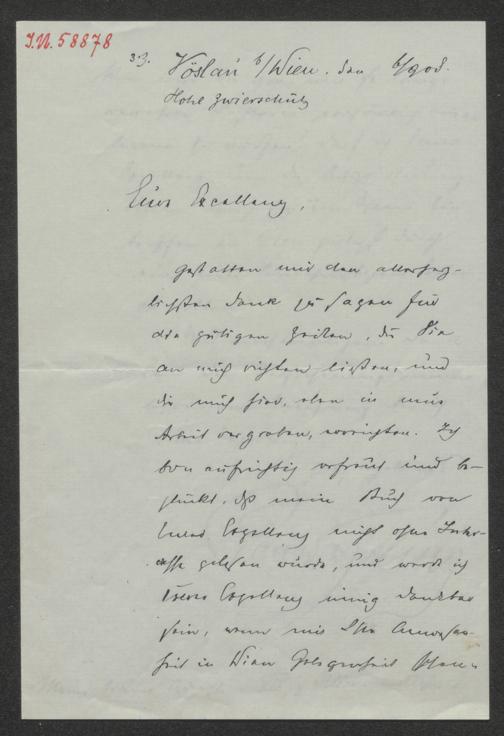 I.N. 58878
z.Z. Vöslau b/Wien. den 6/908.
Hotel Zwierschütz
Eure Excellenz,
gestatten mir den allerherz-
lichsten Dank zu sagen für
die gütigen Zeilen, die Sie
an mich richten ließen, und
die mich hier, eben in neue
Arbeit vergraben, erreichten. Ich
bin aufrichtig erfreut und be-
glückt, daß mein Buch von
Eurer Exzellenz nicht ohne Inter-
esse gelesen wurde, und werde ich
Eurer Exzellenz innig dankbar
sein, wenn mir Ihre Anwesen-
heit in Wien Gelegenheit schen-